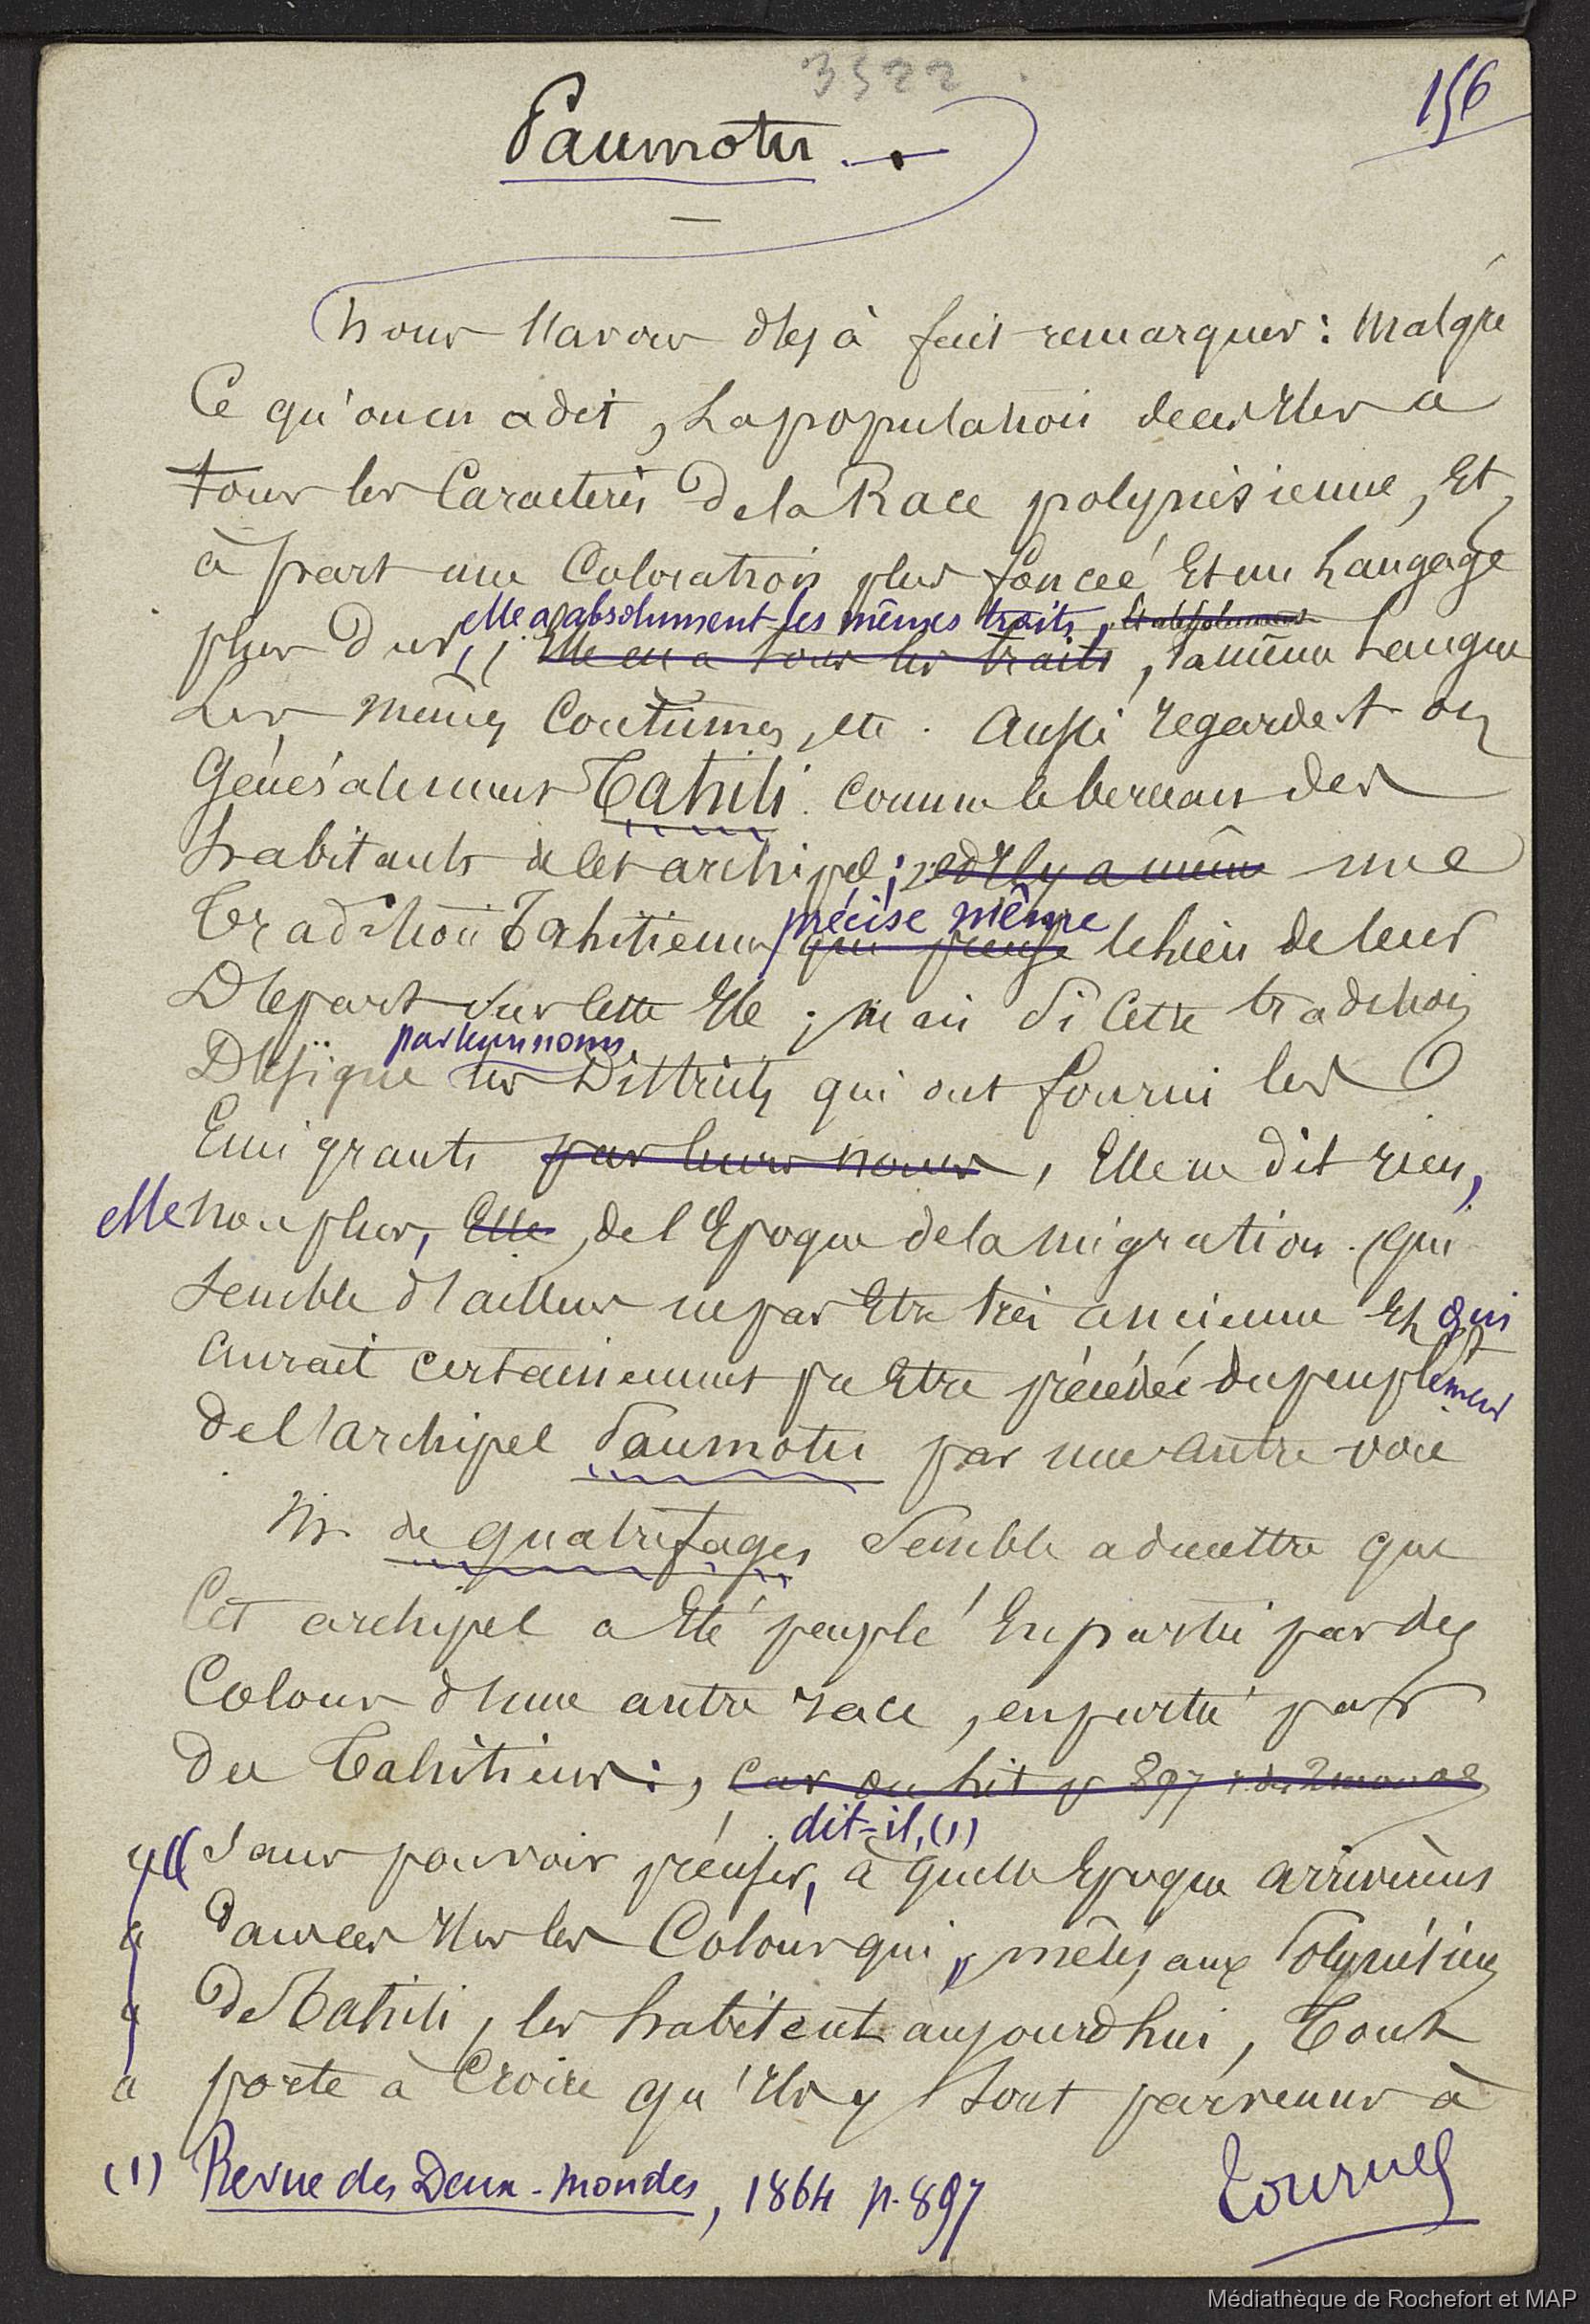 3522
156
Paumotu.
Nous l'avons déjà fait remarquer : malgré
Ce qu'on en a dit, la population de ces Iles a
tous les Caractères de la Race polynésienne, Et,
à part une Coloration plus foncée Et un Langage
elle a absolument les mêmes traits, Et absolument
plus dur, Elle en a tous les traits, la même Langue
Les mêmes Coutumes, etc. Aussi regarde-t-on
Généralement Tahiti comme le berceau des
habitants de cet archipel ; Il y a même une
précise même
Tradition Tahitienne qui précise le lieu de leur
Départ sur cette Ile ; mais si cette tradition
par leurs noms
Désigne les Districts qui ont fourni les
Emigrants par leurs noms, Elle ne dit rien,
elle non plus, Elle, de l'Epoque de la migration qui
semble d'ailleurs ne pas Etre très ancienne Et qui
aurait certainement pu Etre précédée du peuplement
de l'archipel Paumotu par une autre voie
Mr de Quatrefages semble admettre que
Cet archipel a Eté peuplé En partie par des
Colons d'une autre race, en partie par
des Tahitiens :, Car on lit p 897 r. des 2 mondes
dit-il, (1)
"Sans pouvoir préciser, à quelle Epoque arrivèrent
" dans ces Iles les Colons qui, mêlés aux Polynésiens
" De Tahiti, les habitent aujourd'hui, Tout
" porte à Croire qu'Ils y sont parvenus à
(1) Revue des Deux-Mondes, 1864 p. 897
Tournez
Médiathèque de Rochefort et MAP